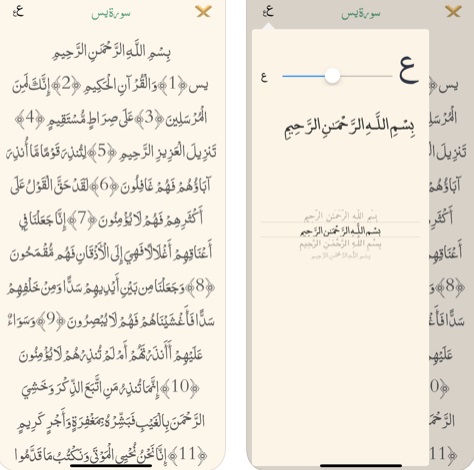 عع
سورة يس
بِسْمِ اللَّهِ الرَّحْمَنِ الرَّحِيمِ
يس ﴿1﴾ وَالْقُرْآنِ الْحَكِيمِ ﴿2﴾ إِنَّكَ لَمِنَ
الْمُرْسَلِينَ ﴿3﴾ عَلَى صِرَاطٍ مُّسْتَقِيمٍ ﴿4﴾
تَنزِيلَ الْعَزِيزِ الرَّحِيمِ ﴿5﴾ لِتُنذِرَ قَوْمًا مَّا أُنذِرَ
آبَاؤُهُمْ فَهُمْ غَافِلُونَ ﴿6﴾ لَقَدْ حَقَّ الْقَوْلُ عَلَى
أَكْثَرِهِمْ فَهُمْ لَا يُؤْمِنُونَ ﴿7﴾ إِنَّا جَعَلْنَا فِي
أَعْنَاقِهِمْ أَغْلَالًا فَهِيَ إِلَى الْأَذْقَانِ فَهُم مُّقْمَحُونَ
﴿8﴾ وَجَعَلْنَا مِن بَيْنِ أَيْدِيهِمْ سَدًّا وَمِنْ خَلْفِهِمْ
سَدًّا فَأَغْشَيْنَاهُمْ فَهُمْ لَا يُبْصِرُونَ ﴿9﴾ وَسَوَاءٌ
عَلَيْهِمْ أَأَنذَرْتَهُمْ أَمْ لَمْ تُنذِرْهُمْ لَا يُؤْمِنُونَ
﴿10﴾ إِنَّمَا تُنذِرُ مَنِ اتَّبَعَ الذِّكْرَ وَخَشِيَ
الرَّحْمَنَ بِالْغَيْبِ فَبَشِّرْهُ بِمَغْفِرَةٍ وَأَجْرٍ كَرِيمٍ
﴿11﴾ إِنَّا نَحْنُ نُحْيِي الْمَوْتَى وَنَكْتُبُ مَا قَدَّمُوا
عع
سورة يس
ع
ع
بِسْمِ اللَّهِ الرَّحْمَنِ الرَّحِيمِ
بِسْمِ اللَّهِ الرَّحْمَنِ الرَّحِيمِ
بِسْمِ اللَّهِ الرَّحْمَنِ الرَّحِيمِ
بِسْمِ اللَّهِ الرَّحْمَنِ الرَّحِيمِ
بِسْمِ اللَّهِ الرَّحْمَنِ الرَّحِيمِ